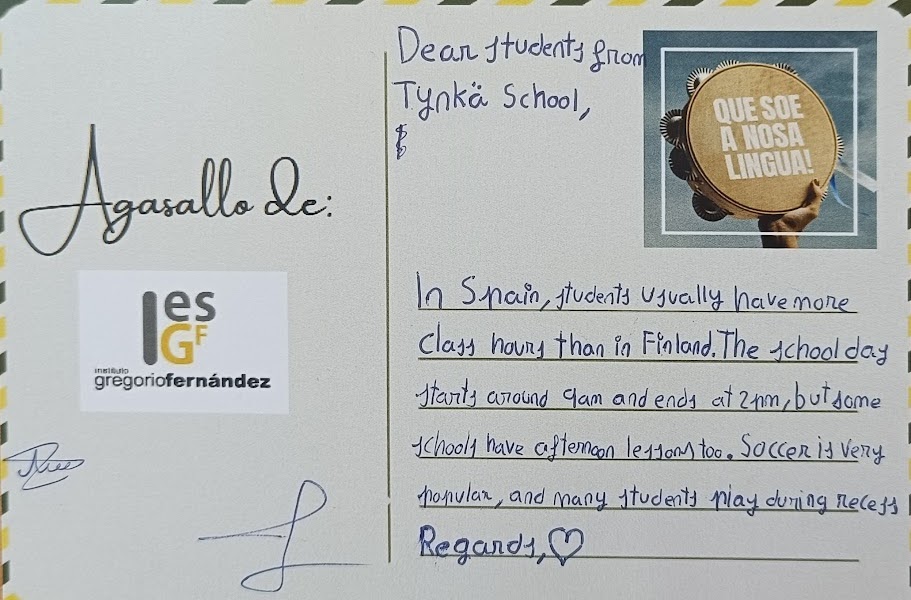 Agasallo de:
Ies
GF
instituto
gregoriofernández
Dear students from
Tynkä School,
QUE SOE
A NOSA
LINGUA!
In Spain, students usually have more
class hours than in Finland. The school day
starts around 9am and ends at 2pm, but some
schools have afternoon lessons too. Soccer is very
popular, and many students play during recess
Regards, ♡